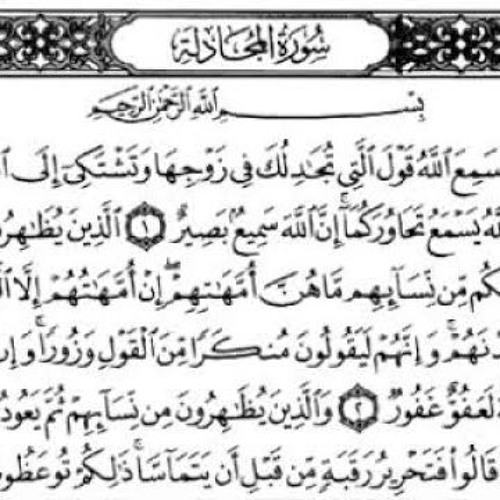 سُورَةُ المُجَادلَة
بِسْمِ اللَّهِ الرَّحْمَٰنِ الرَّحِيمِ
سَمِعَ اللَّهُ قَوْلَ الَّتِي تُجَادِلُكَ فِي زَوْجِهَا وَتَشْتَكِي إِلَى
يَسْمَعُ تَحَاوُرَكُمَا إِنَّ اللَّهَ سَمِيعٌ بَصِيرٌ ١ الَّذِينَ
مِّن نِّسَآئِهِم مَّا هُنَّ أُمَّهَٰتِهِمْ إِنْ أُمَّهَٰتُهُمْ إِلَّا
وَإِنَّهُمْ لَيَقُولُونَ مُنكَرًا مِّنَ الْقَوْلِ وَزُورًا
لَعَفُوٌّ غَفُورٌ ٢ وَالَّذِينَ يُظَٰهِرُونَ مِن نِّسَآئِهِمْ ثُمَّ
قَالُوا فَتَحْرِيرُ رَقَبَةٍ مِّن قَبْلِ أَن يَتَمَآسَّا ذَٰلِكُمْ